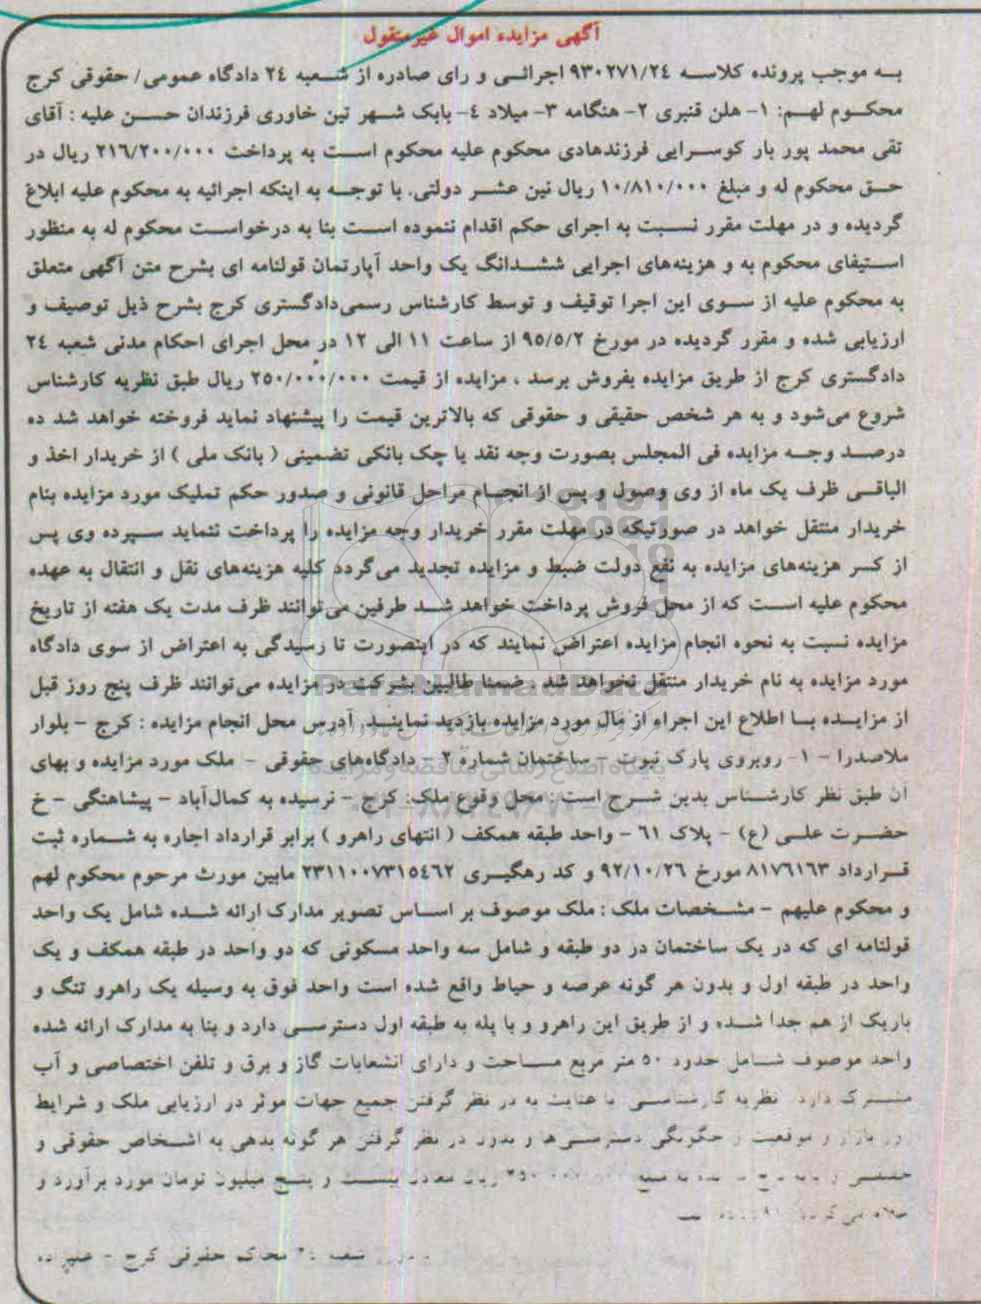 آگهی مزایده اموال غیرمنقول
به موجب پرونده کلاسه ۹۳۰۲۷۱/۲٤ اجرائی و رای صادره از شعبه ۲٤ دادگاه عمومی/ حقوقی کرج
محکوم لهم: ۱- هلن قنبری ۲- هنگامه ۳- میلاد ٤- بابک شهر تین خاوری فرزندان حسن علیه : آقای
تقی محمد پور بار کوسرایی فرزندهادی محکوم علیه محکوم است به پرداخت ۲۱٦/۲۰۰/۰۰۰ ریال در
حق محکوم له و مبلغ ۱۰/۸۱۰/۰۰۰ ریال نین عشر دولتی. با توجه به اینکه اجرائیه به محکوم علیه ابلاغ
گردیده و در مهلت مقرر نسبت به اجرای حکم اقدام ننموده است بنا به درخواست محکوم له به منظور
استیفای محکوم به و هزینه‌های اجرایی ششدانگ یک واحد آپارتمان قولنامه ای بشرح متن آگهی متعلق
به محکوم علیه از سوی این اجرا توقیف و توسط کارشناس رسمی‌دادگستری کرج بشرح ذیل توصیف و
ارزیابی شده و مقرر گردیده در مورخ ۹۵/۵/۲ از ساعت ۱۱ الی ۱۲ در محل اجرای احکام مدنی شعبه ۲٤
دادگستری کرج از طریق مزایده بفروش برسد ، مزایده از قیمت ۲۵۰/۰۰۰/۰۰۰ ریال طبق نظریه کارشناس
شروع می‌شود و به هر شخص حقیقی و حقوقی که بالاترین قیمت را پیشنهاد نماید فروخته خواهد شد ده
درصد وجه مزایده فی المجلس بصورت وجه نقد یا چک بانکی تضمینی ( بانک ملی ) از خریدار اخذ و
الباقی ظرف یک ماه از وی وصول و پس از انجام مراحل قانونی و صدور حکم تملیک مورد مزایده بنام
خریدار منتقل خواهد در صورتیکه در مهلت مقرر خریدار وجه مزایده را پرداخت ننماید سپرده وی پس
از کسر هزینه‌های مزایده به نفع دولت ضبط و مزایده تجدید می‌گردد کلیه هزینه‌های نقل و انتقال به عهده
محکوم علیه است که از محل فروش پرداخت خواهد شد طرفین می‌توانند ظرف مدت یک هفته از تاریخ
مزایده نسبت به نحوه انجام مزایده اعتراض نمایند که در اینصورت تا رسیدگی به اعتراض از سوی دادگاه
مورد مزایده به نام خریدار منتقل نخواهد شد . ضمنا طالبین بشرکت در مزایده می‌توانند ظرف پنج روز قبل
از مزایده با اطلاع این اجراء از مال مورد مزایده بازدید نمایند. آدرس محل انجام مزایده : کرج - بلوار
ملاصدرا - ۱- روبروی پارک نبوت - ساختمان شماره ۲ - دادگاه‌های حقوقی - ملک مورد مزایده و بهای
آن طبق نظر کارشناس بدین شرح است: محل وقوع ملک: کرج - نرسیده به کمال‌آباد - پیشاهنگی - خ
حضرت علی (ع) - پلاک ٦۱ - واحد طبقه همکف ( انتهای راهرو ) برابر قرارداد اجاره به شماره ثبت
قرارداد ۸۱۷٦۱٦۳ مورخ ۹۲/۱۰/۲٦ و کد رهگیری ۲۳۱۱۰۰۷۳۱۵٤٦۲ مابین مورث مرحوم محکوم لهم
و محکوم علیهم - مشخصات ملک : ملک موصوف بر اساس تصویر مدارک ارائه شده شامل یک واحد
قولنامه ای که در یک ساختمان در دو طبقه و شامل سه واحد مسکونی که دو واحد در طبقه همکف و یک
واحد در طبقه اول و بدون هر گونه عرصه و حیاط واقع شده است واحد فوق به وسیله یک راهرو تنگ و
باریک از هم جدا شده و از طریق این راهرو و با پله به طبقه اول دسترسی دارد و بنا به مدارک ارائه شده
واحد موصوف شامل حدود ۵۰ متر مربع مساحت و دارای انشعابات گاز و برق و تلفن اختصاصی و آب
مشترک دارد. نظریه کارشناسی با عنایت به در نظر گرفتن جمیع جهات موثر در ارزیابی ملک و شرایط
بازار و موقعیت و چگونگی دسترسی‌ها و بدون در نظر گرفتن هر گونه بدهی به اشخاص حقوقی و
ریال معادل بیست و پنج میلیون تومان مورد برآورد و
شعبه محاکم حقوقی کرج -